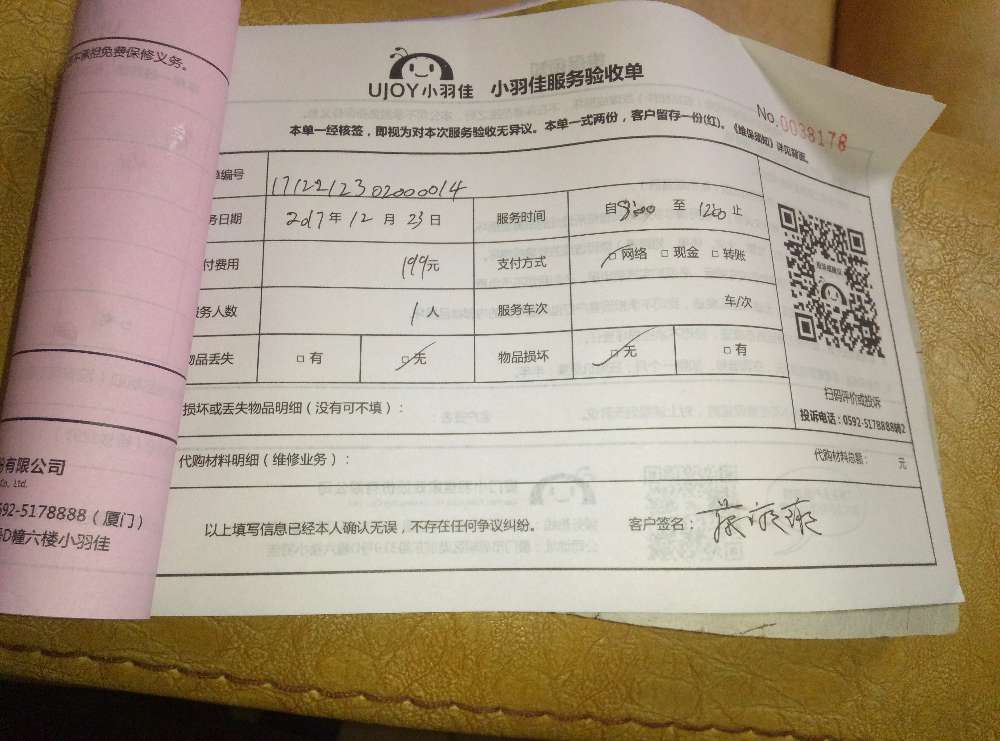 不承担免费保修义务。
UJOY小羽佳 小羽佳服务验收单
No.0038178
本单一经核签，即视为对本次服务验收无异议。本单一式两份，客户留存一份(红)。《维保须知》详见背面。
单编号 1712212302000014
务日期 2017年12月23日 服务时间 自 至 1200 止
付费用 199元 支付方式 □网络 □现金 □转账
服务人数 1人 服务车次 车/次
物品丢失 □有 □无 物品损坏 □无 □有
扫码评价或投诉
损坏或丢失物品明细（没有可不填）：
投诉电话：0592-5178888转2
代购材料明细（维修业务）： 代购材料总额： 元
以上填写信息已经本人确认无误，不存在任何争议纠纷。 客户签名：
份有限公司
Co., Ltd.
592-5178888（厦门）
D幢六楼小羽佳